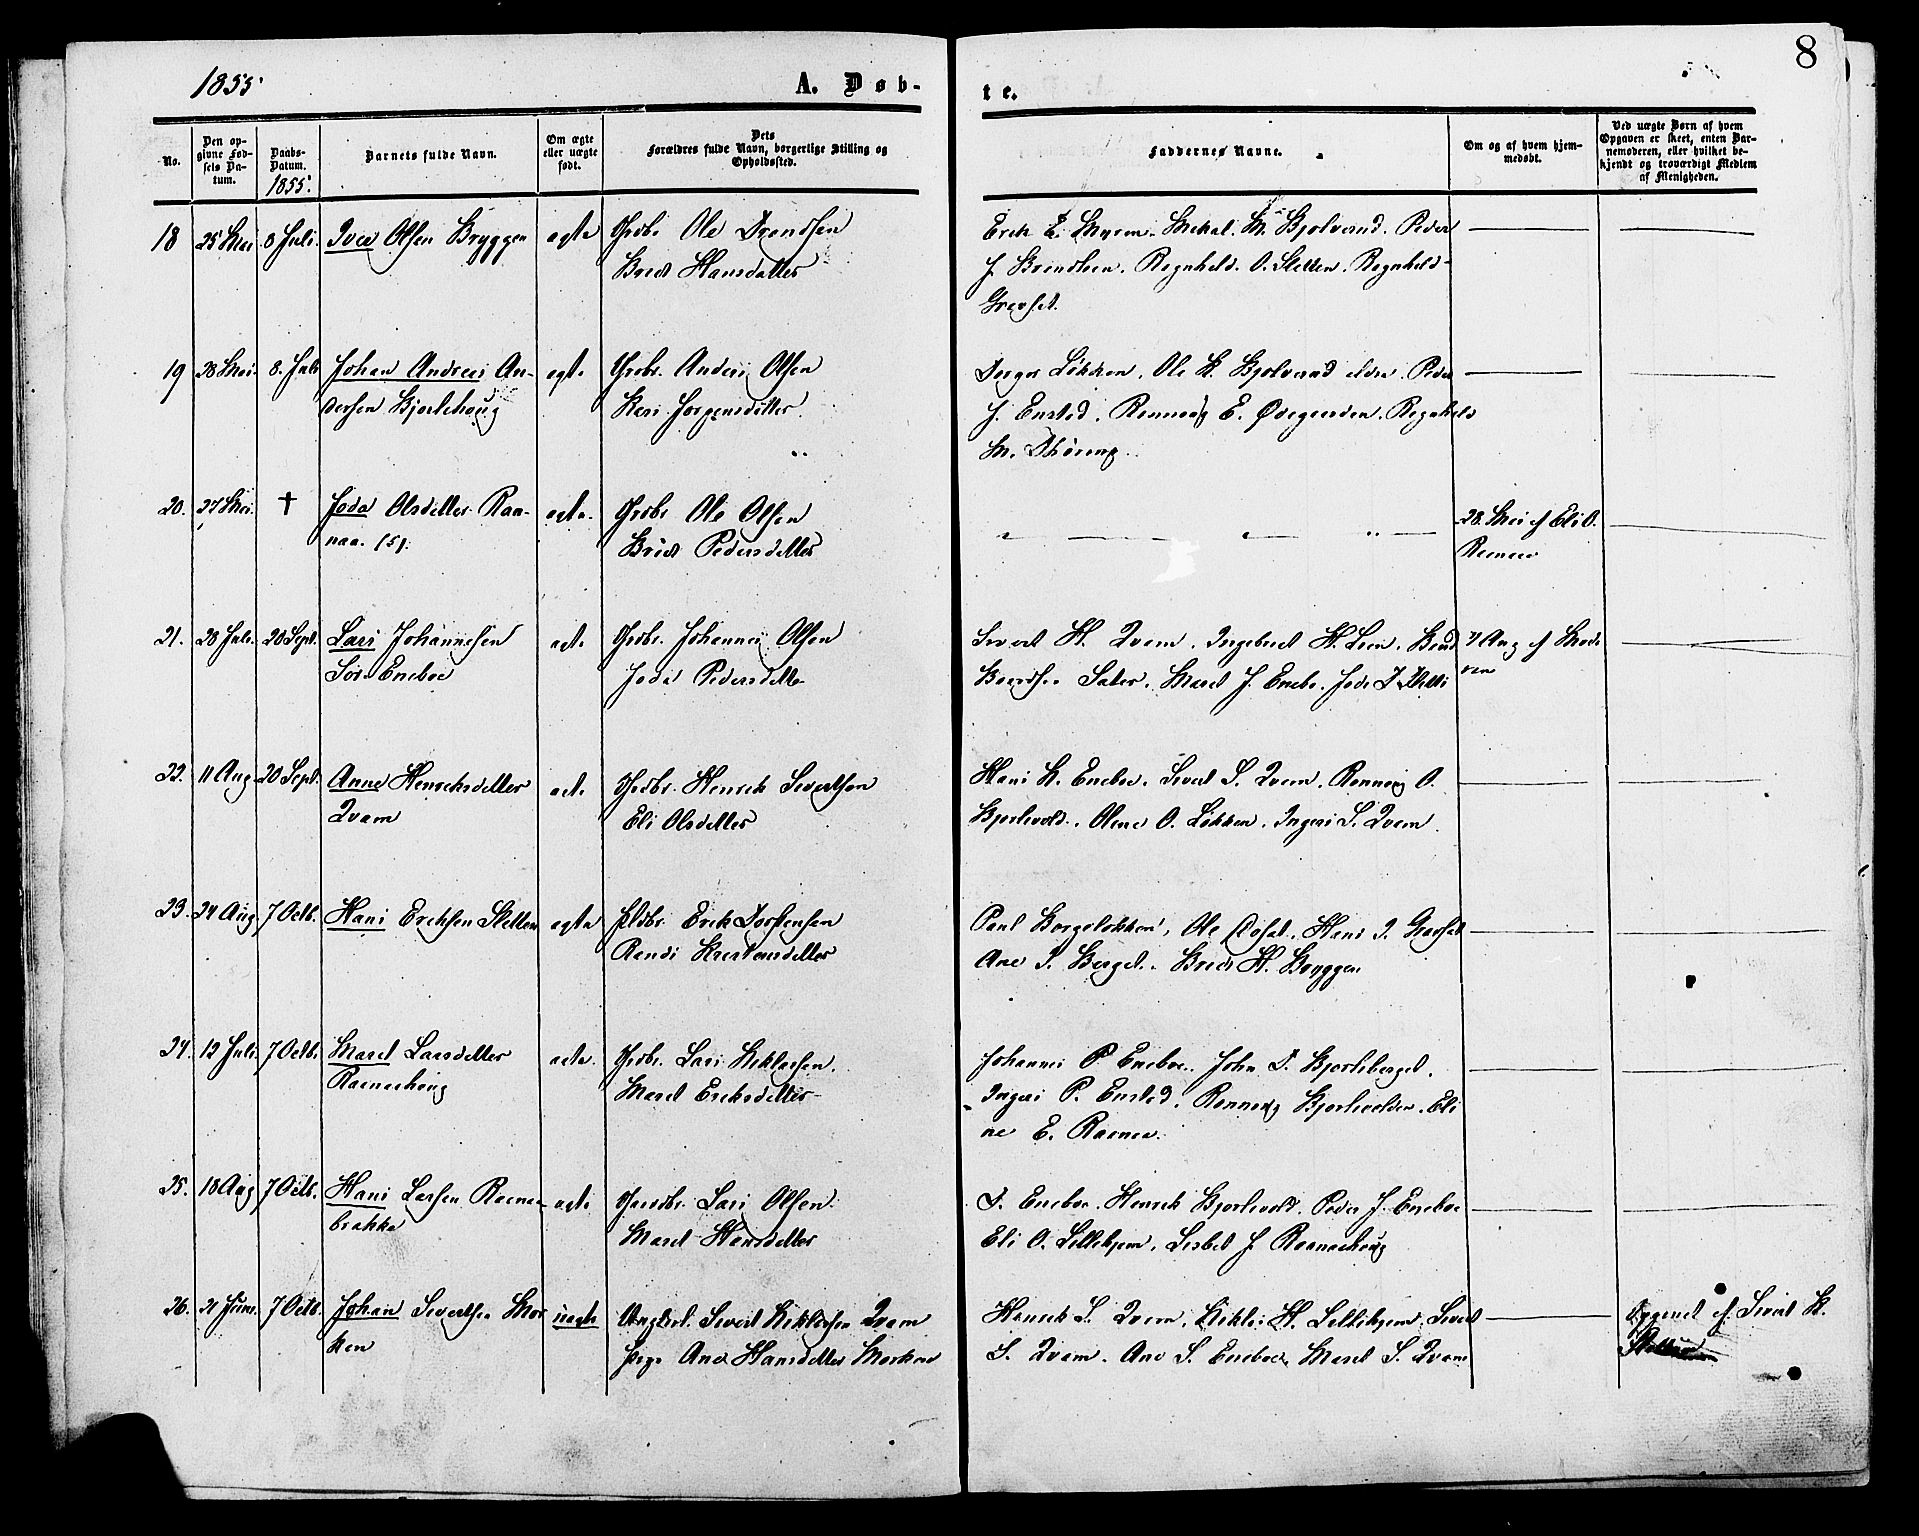 8
1855.
A. Døb-
te.
No.
Den op-
givne Fød-
sels Da-
tum.
Daabs-
Datum.
1855.
Barnets fulde Navn.
Om ægte
eller uægte
født.
Dets
Forældres fulde Navn, borgerlige Stilling og
Opholdssted.
Faddernes Navne.
Om og af hvem hjem-
medøbt.
Ved uægte Børn af hvem
Opgaven er skeet, enten Bar-
nemoderen, eller hvilket be-
kjendt og troværdigt Medlem
af Menigheden.
18 25 Mai 8 Juli Iver Olsen Bryggen ægte Grdbr Ole Trondsen
Brit Hansdatter
Erik Myren. Mikal. M. Bjolverud. Peder
J. Brendlien. Ragnhild. O. Sletten. Ragnhild
19 28 Mai. 8. Juli Johan Andreas An-
dersen Bjorlihoug ægte Grdbr. Anders Olsen
Kari Jorgensdatter.
Løkken. Ole H. Bjolverud eldre. Peder
J. Enstad. Ronnoug E. Ødegaarden. Ragnhild
M.
20. 27 Mai. † Joda Olsdatter Raa-
naa. 151. ægte. Grdbr Ole Olsen
Brit Pedersdatter
28. Mai af Eli O.
Raanaa
21. 28 Juli. 20 Sept. Lars Johannesen
Sør-Eneboe ægte Grdbr. Johannes Olsen
Joda Pedersdatter
Sivert H. Qvam. Ingebret H. Lien.
Sater. Marit J. Enebo. Joda
Aug af Mode
ren
22. 11 Aug. 20 Sept. Anne Henriksdatter
Qvam ægte Grdbr. Henrik Sivertsen
Eli Olsdatter
Hans H. Eneboe. Sivert S. Qvam. Ronnoug O.
Bjorlivold. Olene O. Løkken. Ingeri S. Qvam.
23. 24 Aug 7 Octb. Hans Eriksen Sletten ægte Erik Torstensen
Randi Kristensdatter
Paul Borgeløkken, Ole Aasal. Hans
Ane S. Berget. Brit H. Bryggen
24. 12 Juli. 7 Octb. Marit Larsdatter
Raanaahoug ægte. Grdbr. Lars Niklasen.
Marit Eriksdatter
Johannes P Eneboe. John Bjorliberget.
Ingeri P. Enstad. Ronnoug Bjorlivolden. Eli
ne E. Raanaa.
25. 18 Aug 7 Octb. Hans Larsen Raanaa-
brakka ægte Lars Olsen.
Marit Hansdatter
Eneboe. Henrik Bjorlivold. Peder J. Eneboe
Eli O. Lillehjem. Lisbet J. Raanaahoug
26. 21 Juni. 7 Octb. Johan Sivertsen Mor
ken uægte Ungkrl. Sivert Niklasen Qvam
Pige Ane Hansdatter Morken
Henrik S. Qvam. Niklas H. Lillehjem. Sivert
S. Qvam. Ane S. Eneboe. Marit S. Qvam
Opgivet af Sivert